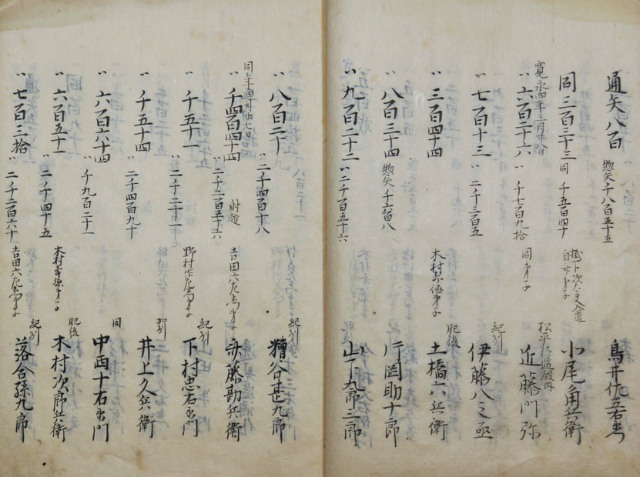 通矢八百 惣矢千八百五十五 鳥井作左右
同三百三十三 同千五百四十 小尾角兵衛
寛永四年三月
〃六百二十六 〃千七百九拾 同弟子 近藤門弥
〃七百十三 〃二千三百五 紀州 伊藤八之丞
〃三百四十四 木村 弟子 肥後 土橋六兵衛
〃八百三十四 惣矢千六百八 片岡助十郎
〃九百二十二 〃二千百五十六 山下九郎二郎
〃八百二十 〃二千四百十八 紀州 糟谷甚九郎
同年四月
〃千四百四十四 〃二千二百五十六 射越 吉田六左衛門弟子 紀州 斉藤勘兵衛
〃千五十一 〃二千二十一 野村 弟子 紀州 下村忠右衛門
〃千五十四 〃二千四百九十 井上久兵衛
〃六百六十四 〃千九百二十一 同 中西十右衛門
〃六百五十一 〃二千四十五 木村 弟子 肥後 木村次郎兵衛
〃七百三拾 〃二千三百六十 吉田六左衛門弟子 紀州 落合孫九郎